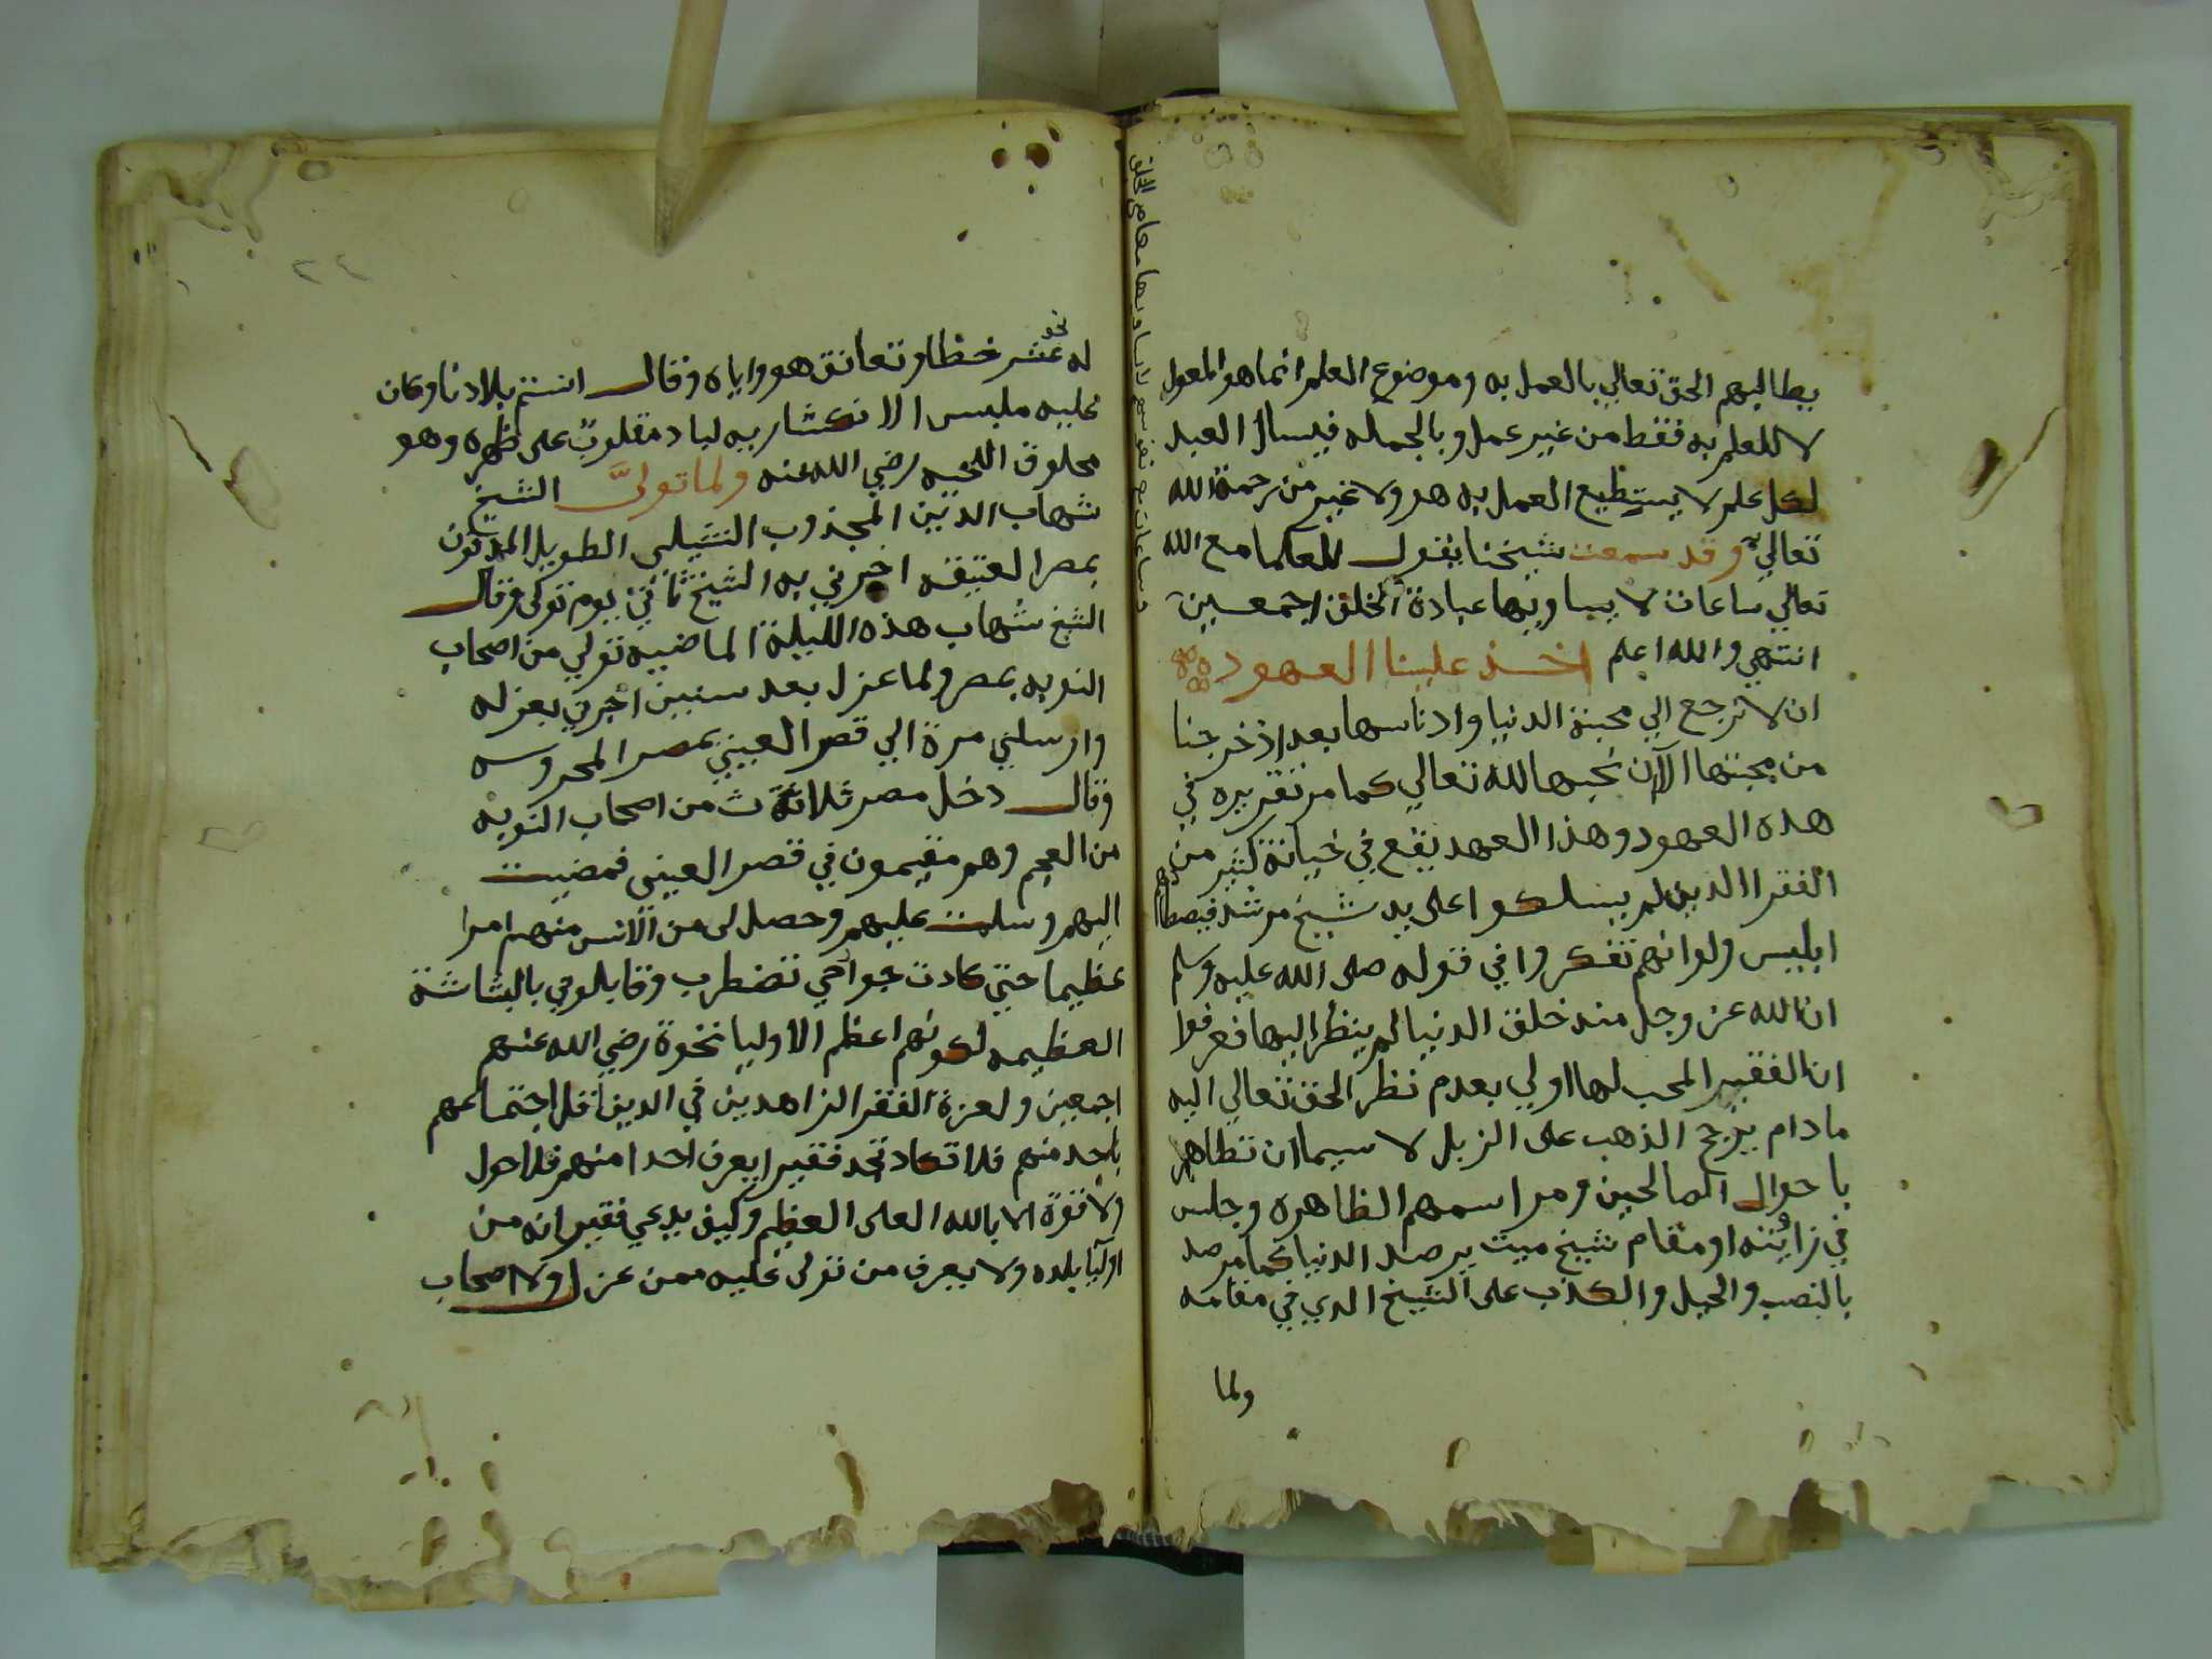 يطالبهم الحق تعالي بالعمل به وموضوع العلم انما هو المعول
لا للعلم به فقط من غير عمل وبالجمله فيسال العبد
لكل علم لا يستطيع العمل به هو ولا غير من رحمة الله
تعالي وقد سمعت شيخنا يقول للعلما مع الله
تعالي ساعات لا يساويها عبادة الخلق اجمعين
انتهي والله اعلم اخذ علينا العهود
ان لا نرجع الي محبة الدنيا وادناسها بعد اذ خرجنا
من محبتها الا ان نحبها لله تعالي كما مر تقريره في
هذه العهود وهذا العهد يقع في خيانة كثير من
الفقرا الذين لم يسلكوا على يد شيخ مرشد فيصطادهم
ابليس ولو انهم تفكروا في قوله صلى الله عليه وسلم
ان الله عز وجل منذ خلق الدنيا لم ينظر اليها فعرفوا
ان الفقير المحب لها اولي بعدم نظر الحق تعالي اليه
ما دام يرجح الذهب على الزبل لا سيما ان تظاهر
باحوال الصالحين ومراسمهم الظاهره وجلس
في زاويته او مقام شيخ ميت يرصد الدنيا كما مر صد
بالنصب والحيل والكذب على الشيخ الذي في مقامه
ولما
وساعات مع نفوسهم لا يساويها معاصي الخلق
٢٤
له نحو عشر خطا وتعانق هو واياه وقال انستم بلادنا وكان
عليه ملبس الانكشاريه لباد مقلوب على ظهره وهو
محلوق اللحيه رضي الله عنه ولما تولى الشيخ
شهاب الدين المجذوب النشيلى الطويل المدفون
بمصر العتيقه اخبرني به الشيخ ثاني يوم تولى وقال
الشيخ شهاب هذه الليلة الماضيه تولي من اصحاب
النوبه بمصر ولما عزل بعد سنين اخبرني بعزله
وارسلني مرة الي قصر العيني بمصر المحروسه
وقال دخل مصر ثلاثة من اصحاب النوبه
من العجم وهم مقيمون في قصر العينى فمضيت
اليهم وسلمت عليهم وحصل لى من الانس منهم امرا
عظيما حتي كادت جوارحي تضطرب وقابلوني بالبشاشة
العظيمه لكونهم اعظم الاوليا نخوة رضي الله عنهم
اجمعين ولعزة الفقرا الزاهدين في الدين اقل اجتماعهم
باحد منهم فلا تكاد تجد فقيرا يعرف احدا منهم فلا حول
ولا قوة الا بالله العلى العظيم وكيف يدعي فقير انه من
اوليا بلده ولا يعرف من تولى عليه ممن عزل ولا اصحاب